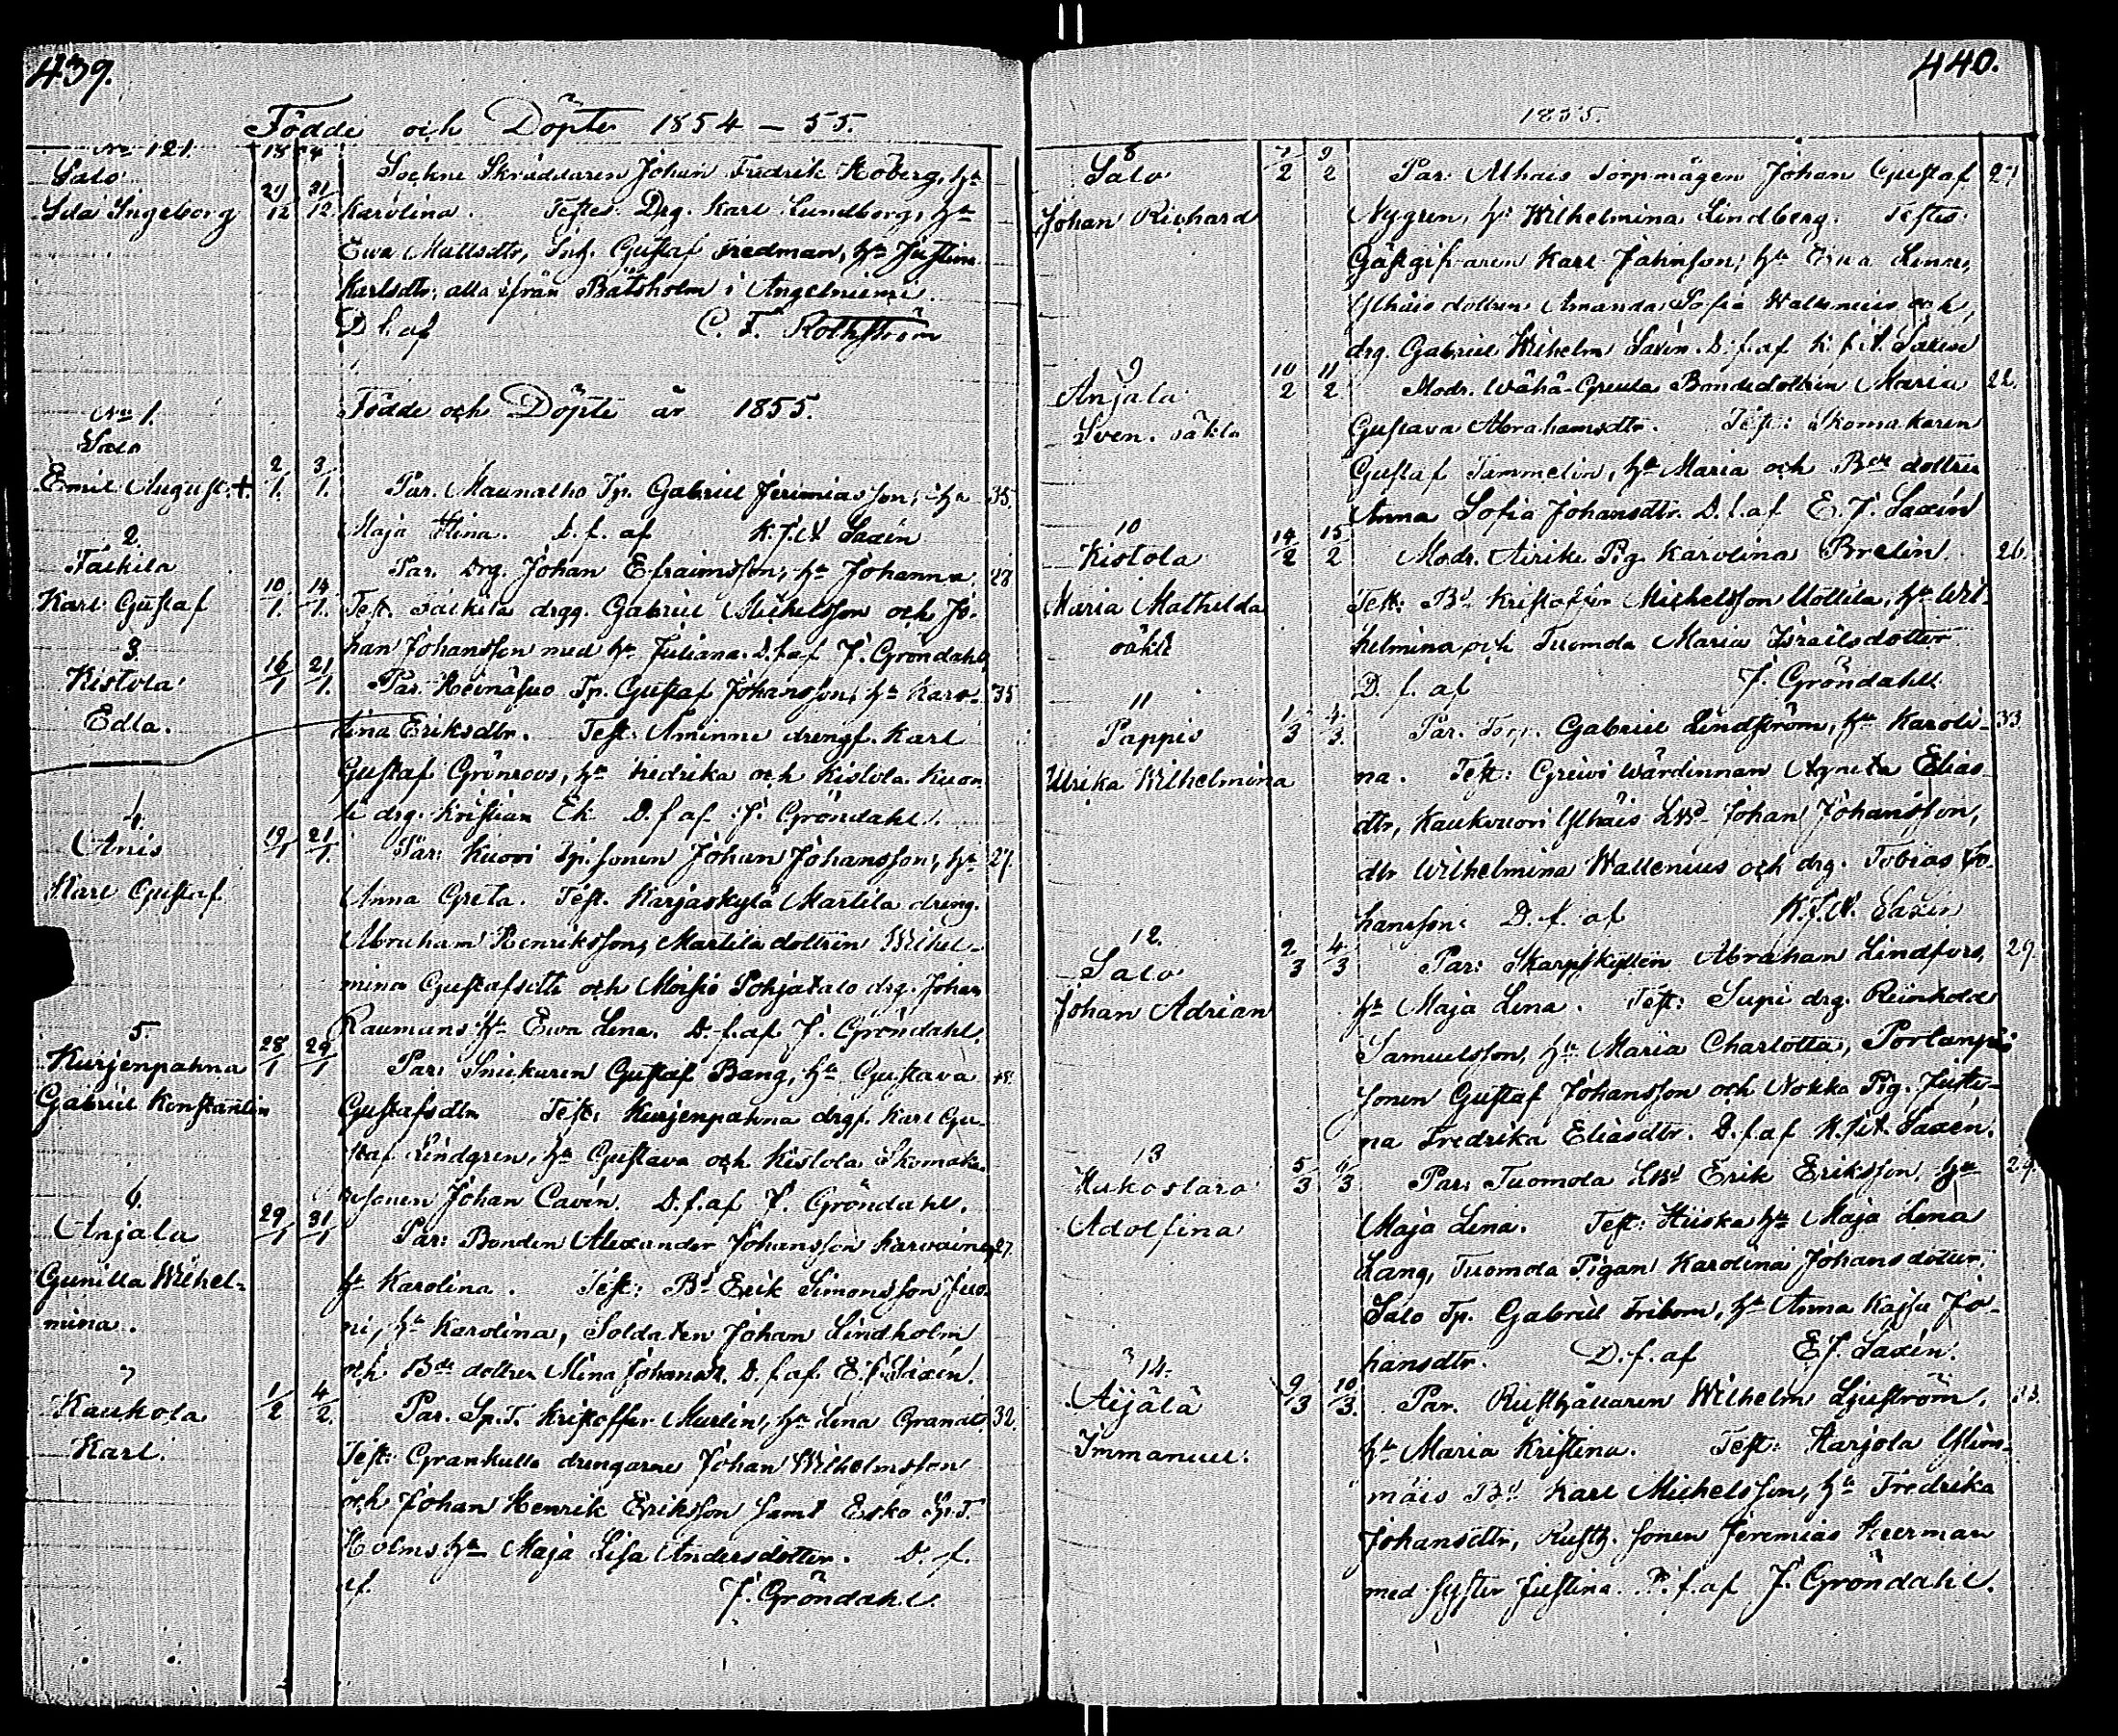 439.
Födde och Döpte 1854 — 55.
No 121.
Salo
Ida Ingeborg
Sockne Skräddaren Johan Fredrik Höberg, hu
Karolina. Testes: Drg. Karl Lundberg, hu
Ewa Mattsdtr, Inh. Gustaf Fredman, hu Justina
Karlsdtr, alla ifrån Båtsholm i Angelniemi.
D. f. af C. F. Rothström
Födde och Döpte år 1855.
No 1.
Salo
Emil August. +
2/1. 3/1.
Par. Maunatho Tp. Gabriel Jeremiasson, hu 35.
Maja Stina. D. f. af K. J. A. Saxén
2.
Karl Gustaf
10/1. 14/1.
Par. Drg. Johan Efraimsson, hu Johanna 28
Test. drgg. Gabriel Michelsson och Jo-
han Johansson med hu Juliana. D. f. af J. Gröndahl,
3.
Kistola
Edla.
Par. Heinäsuo Tp. Gustaf Johansson, hu Karo- 35
lina Eriksdtr. Test: Aminne drengf. Karl
Gustaf Grönroos, hu Fredrika och Kistola
drg. Kristian Ek D. f. af J. Gröndahl.
4.
Anis
Karl Gustaf
19/1 21/1.
Par: Kuovi Tp. sonen Johan Johansson, hu 27.
Anna Greta. Test. Karjaskylä Martila dreng.
Abraham Henriksson, Martila dottren Wilhel-
mina Gustafsdtr och Moisio Pohjatalo drg. Johan
Raumans hu Ewa Lena. D. f. af J. Gröndahl.
5.
Kurjenpahna
Gabriel Konstantin
28/1 29/1
Par: Snickaren Gustaf Bang, hu Gustava
Gustafsdtr Test: Kurjenpahna drgf. Karl Gu-
staf Lindgren, hu Gustava och Kistola Skomaka-
resonen Johan Cavén. D. f. af J. Gröndahl.
6.
Anjala
Gunilla Wilhel-
mina.
29/1 31/1
Par: Bonden Alexander Johansson Karvainen, 27.
hu Karolina. Test: Bd Erik Simonsson Juo-
ni, hu Karolina, Soldaten Johan Lindholm
och Bde dottren Mina Johansdr. D. f. af E. J. Saxén.
7
Kaukola
Karl.
1/2 4/2.
Par. Sp. T. Kristoffer Murlin, hu Lena Grandt 32.
Test: Grankulla drengarne Johan Wilhelmsson
och Johan Henrik Eriksson samt Esko Sp. T.
Holms hu Maja Lisa Andersdotter. D. f.
af. J. Gröndahl.
440.
1855.
8
Salo
Johan Richard
7/2 9/2
Par: Alhais Torpmågen Johan Gustaf 27
Nygren, hu Wilhelmina Lindberg. Testes:
Gästgifvaren Karl Johnsson, hu Ewa Lena,
Ylhäis dottren Amanda Sofia Wallenius och
drg. Gabriel Wilhelm Saxén. D. f. af K. J. A. Saxén
9
Anjala
Sven. oäkta
10/2 11/2
Modr. Wähä-Greula Bondedottren Maria 22.
Gustava Abrahamsdtr. Test: Skomakaren
Gustaf Tammelin, hu Maria och Bde dottren
Anna Sofia Johansdtr. D. f. af E. J. Saxén
10
Kistola
Maria Mathilda
oäkt
14/2 15/2
Modr. Airike Pig. Karolina Brelin. 26.
Test: Bd Kristoffer Michelsson Uotila, hu Wil-
helmina och Tuomola Maria Israelsdotter
D. f. af J. Gröndahl
11
Pappis
Ulrika Wilhelmina
1/3 4/3.
Par. Torp. Gabriel Lindström, hu Karoli- 33
na. Test: Greivi Wärdinnan Agneta Elias-
dtr, Kaukvuori Ylhäis LBd Johan Johansson,
dtr Wilhelmina Wallenius och drg. Tobias Jo-
hansson. D. f. af K. J. A. Saxén
12.
Salo
Johan Adrian
2/3 4/3
Par: Skarpskytten Abraham Lindfors, 29.
hu Maja Lena. Test: Supi drg. Reinhold
Samuelsson, hu Maria Charlotta,
sonen Gustaf Johansson och Nokka Pig. Justi-
na Fredrika Eliasdtr. D. f. af K. J. A. Saxén.
13
Adolfina
5/3 6/3
Par: Tuomola LBd Erik Eriksson, hu 29.
Maja Lena. Test: Hiiska hu Maja Lena
Lang, Tuomola Pigan Karolina Johansdotter.
Salo Tp. Gabriel Fribom, hu Anna Kajsa Jo-
hansdtr. D. f. af E. J. Saxén.
14.
Aijälä
Immanuel.
9/3 10/3.
Par. Rusthållaren Wilhelm Ljuström,
hu Maria Kristina. Test: Karjola Ylim-
mäis Bd Karl Michelsson, hu Fredrika
Johansdtr, Rusth. sonen Jeremias Heerman
med syster Justina. D. f. af J. Gröndahl.